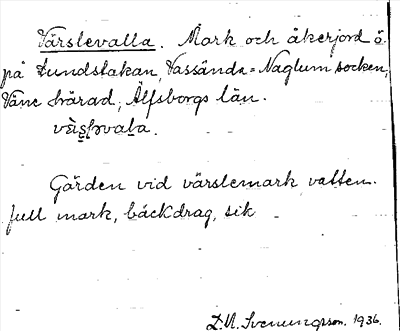 Värslevalla. Mark och åkerjord ö.
på Lundstakan, Vassända-Naglum socken,
Väne härad, Älfsborgs län.
Gärden vid värslemark vatten-
full mark, bäckdrag, sik
1936.